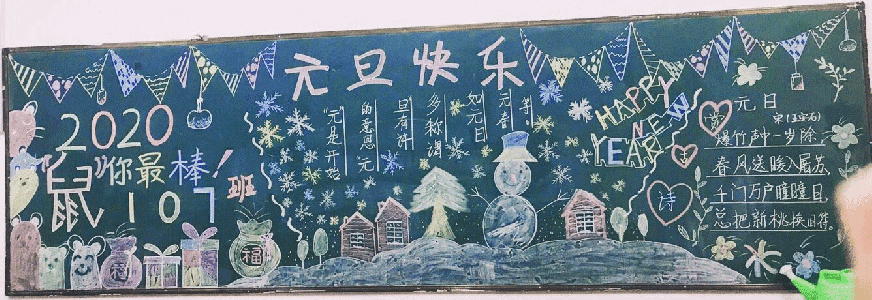 元旦快乐
2020
"鼠"你最棒!
107班
福
福
"元"是开始
的意思"元
旦有许
多称谓
如元日
元春
等
HAPPY
NEW
YEAR
古
古
诗
元日
宋(王安石)
爆竹声中一岁除,
春风送暖入屠苏
千门万户曈曈日,
总把新桃换旧符。